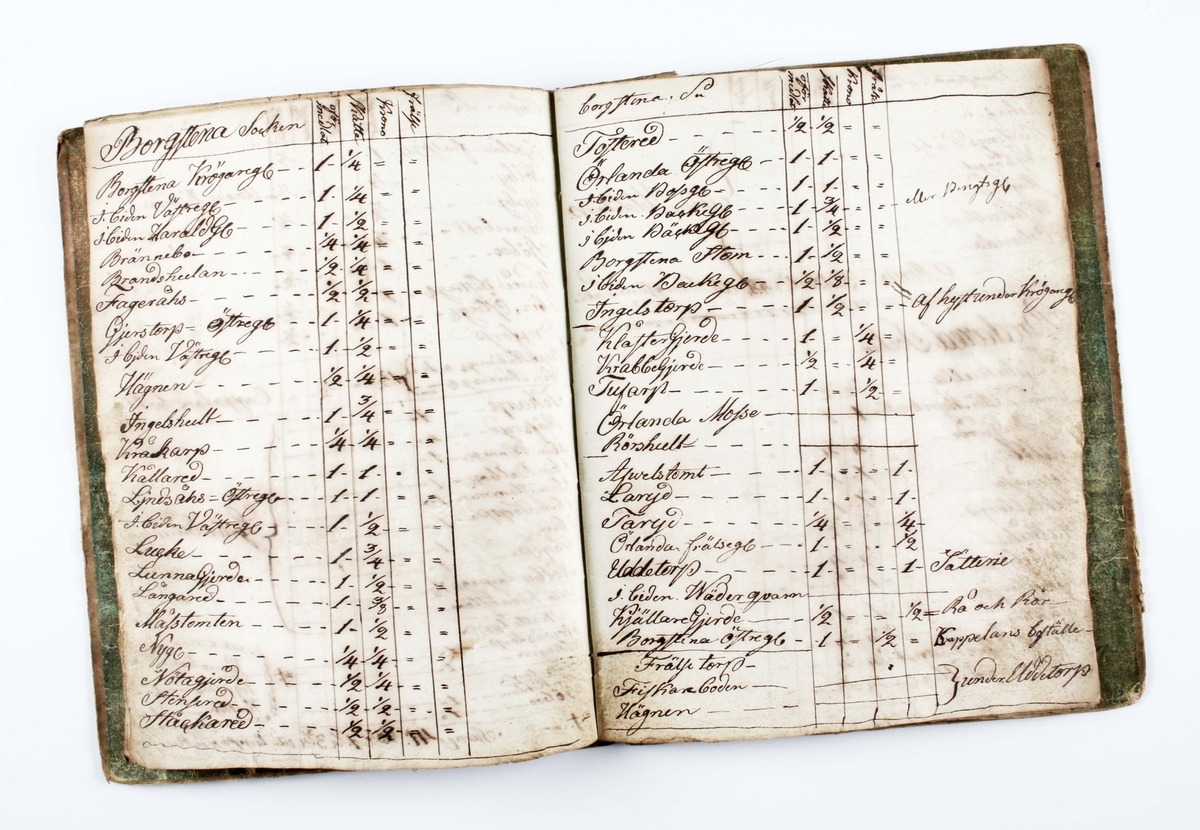 Borgstena Socken Oför medlat Skatte Krono frälse
Borgstena Krögaregl - - 1 - 1/4 = =
i. biden Västregl - - 1 - 1/4 = =
i biden Haraldgl - - 1 - 1/2 = =
Brännebo - - - 1/4 - 1/4 - = =
Brandsheelan - - - 1/2 - 1/4 = =
Fageråhs - - - 1/2 - 1/2 = =
Gjerstorp - Östregl - 1 - 1/4 - = =
i biden Västregl - - 1 - 1/2 - = =
Hägnen - - - 1/2 - 1/4 - =
Ingelshult - - - 1 - 3/4 - = =
Kråkarp - - - 1/4 - 1/4 = =
Källared - - - 1 - 1 - =
Lindsåhs = Östregl - 1 - 1 - = =
i. biden Västregl - - 1 - 1/2 - = =
Lucke - - - 1 - 3/4 - = =
Lunnagjerde - - - 1 - 1/2 - = =
Långared - - - 1 - 3/8 = =
Måstemten - - - 1 - 1/2 - = =
Nygl - - - 1/4 - 1/4 - = =
Nötagjerde - - - 1/2 - 1/4 - = =
Stensred - - - 1/2 - 1/2 - = =
Stackared - - - 1/2 - 1/2 - = =
borgstena: Su oför medlat Skatte Krono fräls
Toftered - - - 1/2 - 1/2 - = =
Örlanda Östregl - - 1 - 1 - = =
i biden Bossgl - - - 1 - 1 - = =
i. biden. Backegl - - 1 - 3/4 - = = eller Bengtsgl
i biden Bäckgl - - - 1 - 1/2 - = =
Borgstena Stom - - 1 - 1/2 - = =
i biden Backegl - - 1/2 - 1/8 - = =
Ingelstorp - - - 1 - 1/2 = = = Af hyst under Krögaregl
Klåstergjerde - - 1 = 1/4 =
Krabbegjerde - - - 1/2 = 1/4 =
Tufarp - - - 1 - = 1/2 =
Örlanda Mosse
Rörshult
Afwelstemt - - - 1 - = = 1 -
Laryd - - - 1 - = = 1 -
Taryd - - - 1/4 = = 1/4 -
Örlanda. frälsegl - - 1 - = = 1/2
Uddetorp - - - 1 - = = 1 - Sätterie
i. biden. Wäderqvarn
Kjällaregjerde - - - 1/2 = = 1/2 = Rå och Rör -
Borgstena Östregl - 1 = 1/2 = Cappelans boställe
Frälse torp -
Fiskareboden - } under Uddetorp
Hägnen -